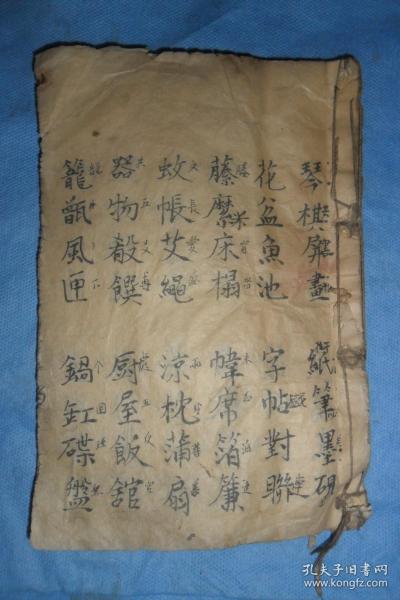 琴棋屏畫 紙筆墨硯
花盆魚池 字帖對聯
藤縻床榻 幃席箔簾
蚊帳艾繩 涼枕蒲扇
器物殽饌 厨屋飯舘
籠甑風匣 鍋缸碟盤
孔夫子旧书网
www.kongfz.com